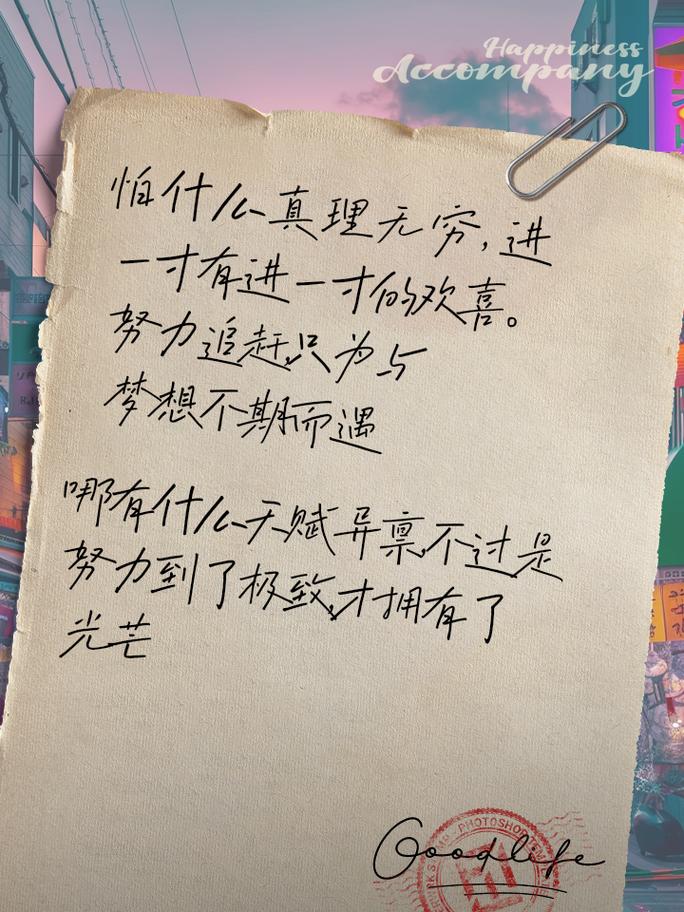 Happiness
Accompany
怕什么真理无穷，进
一寸有进一寸的欢喜。
努力追赶，只为与
梦想不期而遇
哪有什么天赋异禀，不过是
努力到了极致，才拥有了
光芒
PHOTOSHOP
Goodlife